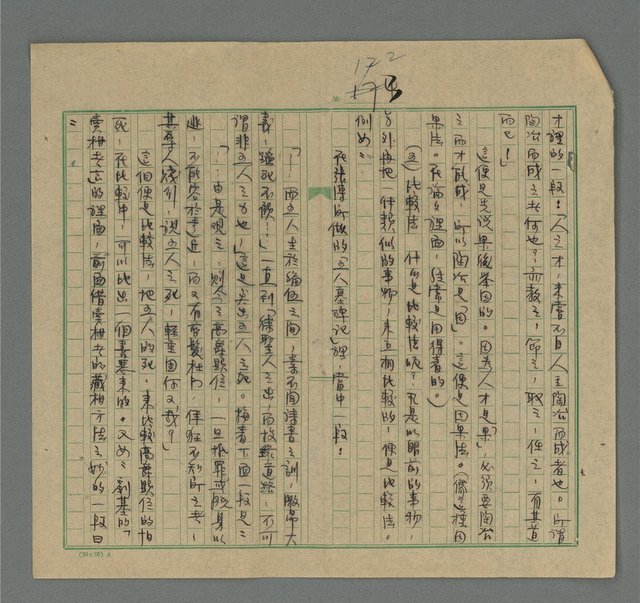 172
才裡的一段：「人之才，未嘗不自人主陶冶而成者也。所謂
陶冶而成之者何也？亦教之，養之，取之，任之，有其道
而已！」
這便是先說果後深因的。因為人才是「果」，必須要陶冶
之而才能成，所以陶冶是「因」。這便是因果法。(像這種因
果法。在論文裡面，經常是用得着的。)
(五)比較法 什么是比較法呢？凡是以眼前的事物，
另外再把一件類似的事物，來互相比較的，便是比較法。
例如：
在張溥所做的「五人墓碑記」裡，當中一段：
「…而五人生於編伍之間，素不聞詩書之訓，激昂大
義，蹈死不顧！…」一直到「待聖人之出，而投繯道路，不可
謂非五人之力也，」這是寫出五人之死。接着下面一段是：
「…由是觀之，則今之高爵顯位，一旦抵罪，或脫身以
逃，不能容於遠近，而又有剪髮杜門，佯狂不知所之者，
其辱人賤行，視五人之死，輕重固何如哉？」
這個便是比較法，把五人的死，來比較高爵顯位的怕
死，在比較中，可以比出一個 來的。又如：劉基的「
賣柑者言」的裡面，前面借賣柑者的藏柑方法之妙的一段曰
：
(20×25) A